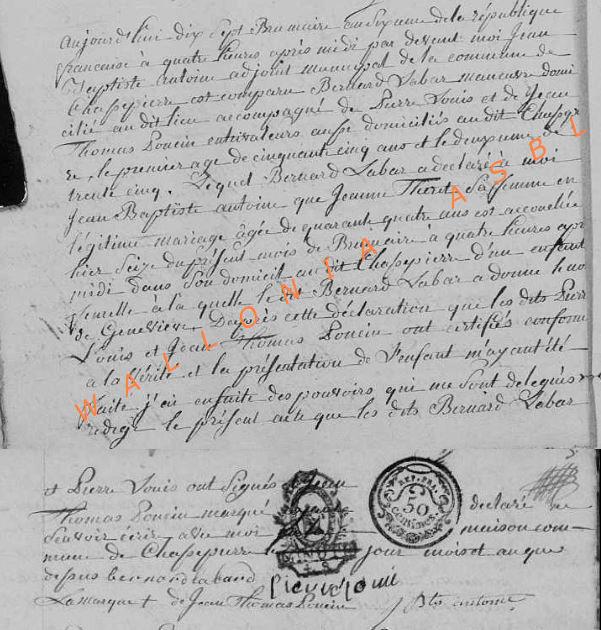 aujourd'hui dix sept Brumaire an six ane de la république
françaice à quatre heures après midi par devant moi Jean
Baptiste antoine adjoint municipal de la commune de
Chassepierre est comparu Bernard Labar maneuvre domi
cilié au dit lieu accompagné de Pierre Louis et de Jean
Thomas Poncin cultivateurs aussi domiciliés au dit Chassepier
re, le premier age de cinquant cinq ans et le deuxieme de
trente cinq. Lequel Bernard Labar a declaré à moi
Jean Baptiste antoine que Jeanne sa femme en
légitime mariage âgée de quarant quatre ans est accouchée
hier Seize du présent mois de Brumaire à quatre heures apr
midi dans son domicil au dit Chassepierre d'un enfant
femelle à la quelle le dit Bernard Labar a donné le no
de Genevieve. Daprès cette déclaration que les dits Pierr
Louis et Jean Thomas Poncin ont certifiés conform
a la vérité et la présentation de l'enfant m'ayant été
faite j'ai ensuite des pouvoirs qui me sont delegués
redigé le présent acte que les dits Bernard Labar
WALLONIA ASBL
et Pierre Louis ont signés et Jean
Thomas Poncin marqué declaré ne
scavoir ecrir avec moi maison com-
mune de Chassepierre le jour mois et an que
desus bernard labard
pierre louis
La marque + de Jean Thomas Poncin J Bte antoine
REP. FRA.
50
centimes